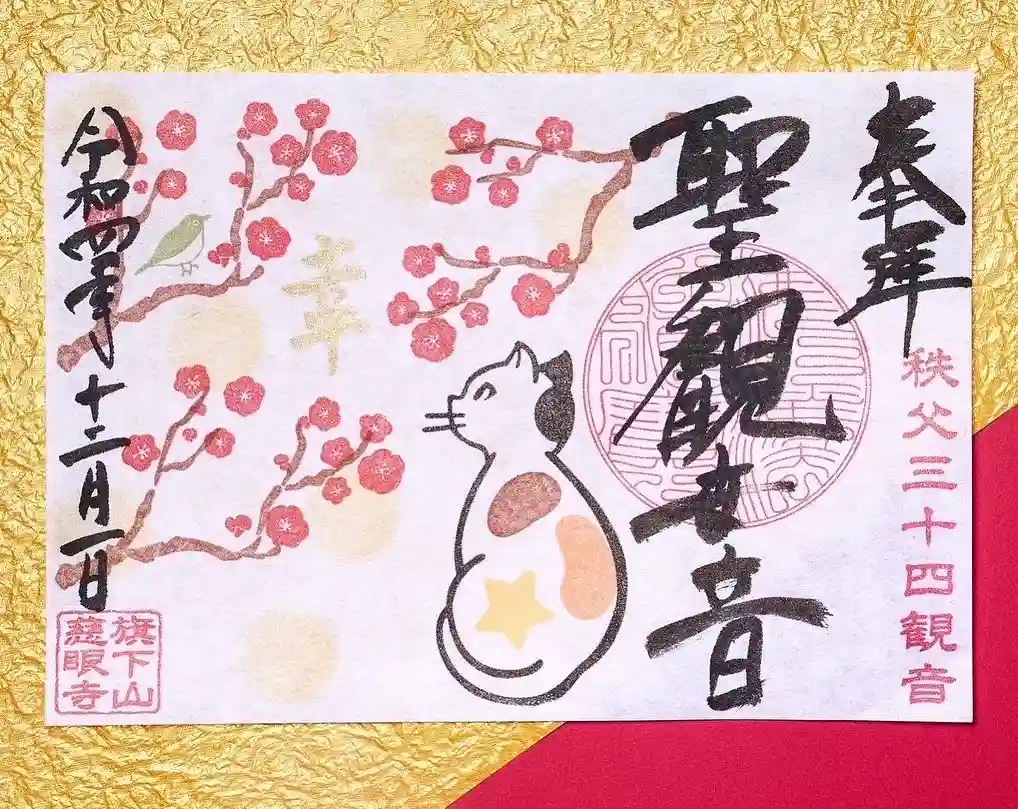 奉拝
秩父三十四観音
聖觀世音
幸
令和四年十二月一日
旗下山
慈眼寺